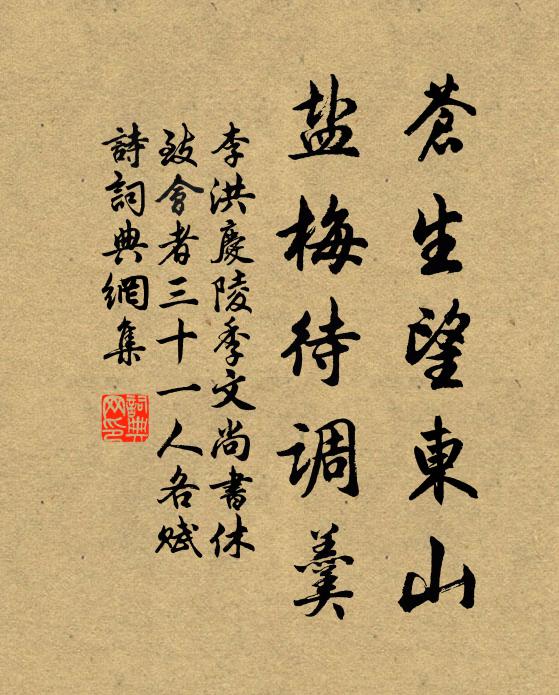 蒼生望東山
盐梅待调羹
李洪慶陵季文尚書休
致會者三十一人各赋
詩詞典網集
詞典
网印